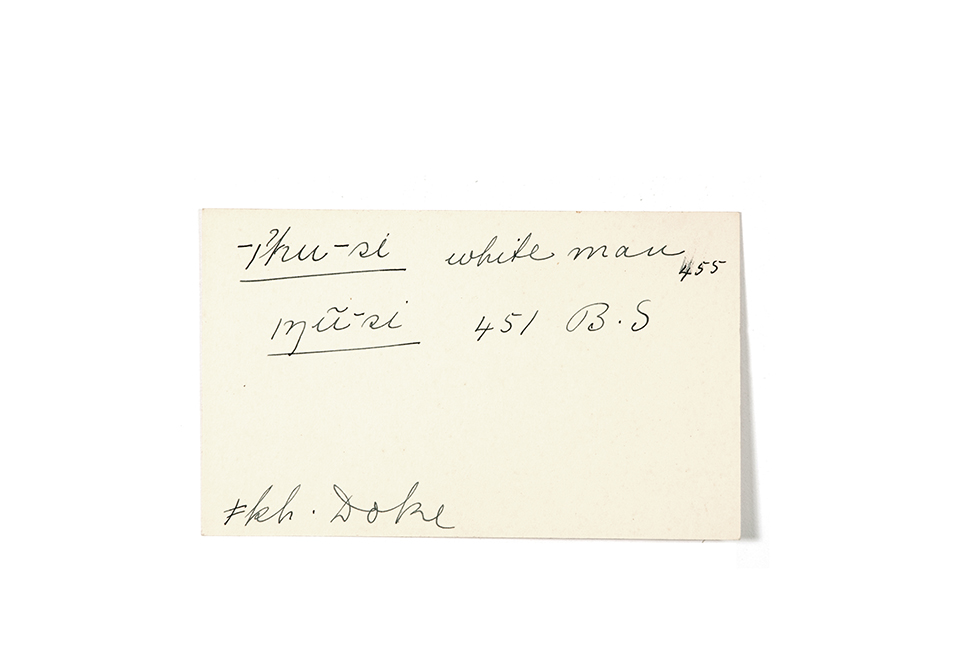 -ʔku-si white man 455
ŋ̄ũ-si 451 B.S
ǂkh. Doke